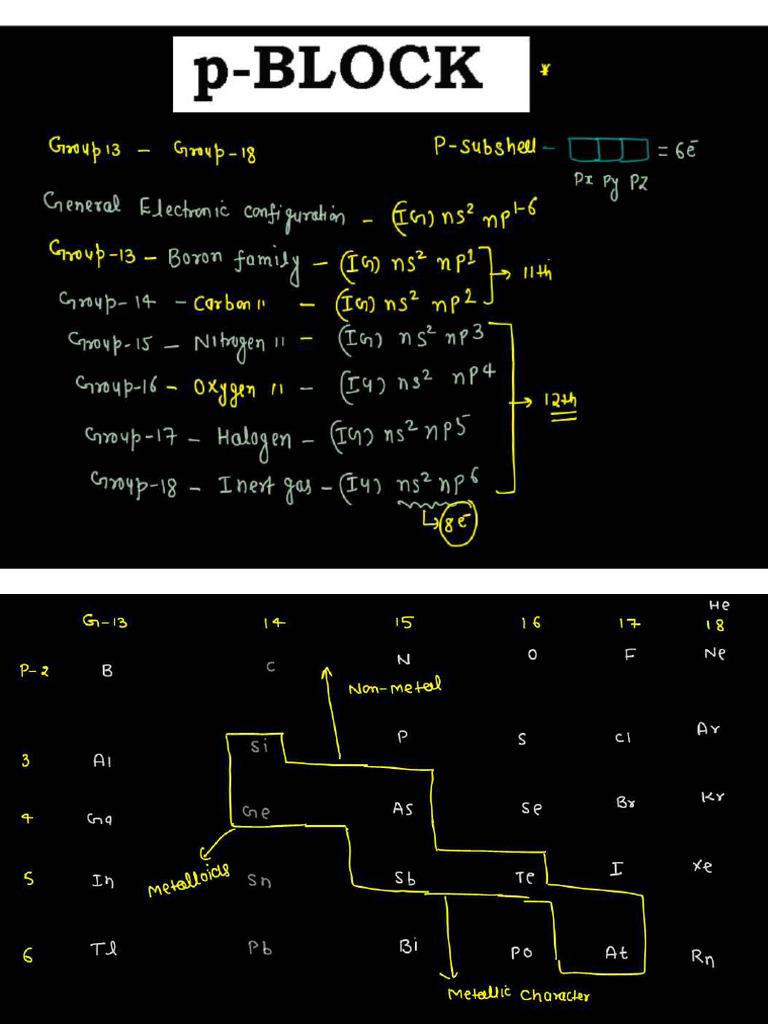 p-BLOCK *
Group 13 - Group-18
P-subshell - = 6e⁻
Px Py Pz
General Electronic configuration - (IG) ns² np¹⁻⁶
Group-13 - Boron family - (IG) ns² np¹
→ 11th
Group-14 - Carbon 〃 - (IG) ns² np²
Group-15 - Nitrogen 〃 - (IG) ns² np3
Group-16 - Oxygen 〃 - (IG) ns² np4
→ 12th
Group-17 - Halogen - (IG) ns² np5
Group-18 - Inert gas - (IG) ns² np⁶
↳ 8e⁻
He
G-13 14 15 16 17 18
P-2 B C N O F Ne
Non-metal
3 Al Si P S Cl Ar
4 Ga Ge As Se Br Kr
5 In Sn Sb Te I Xe
Metalloids
6 Tl Pb Bi Po At Rn
Metallic Character